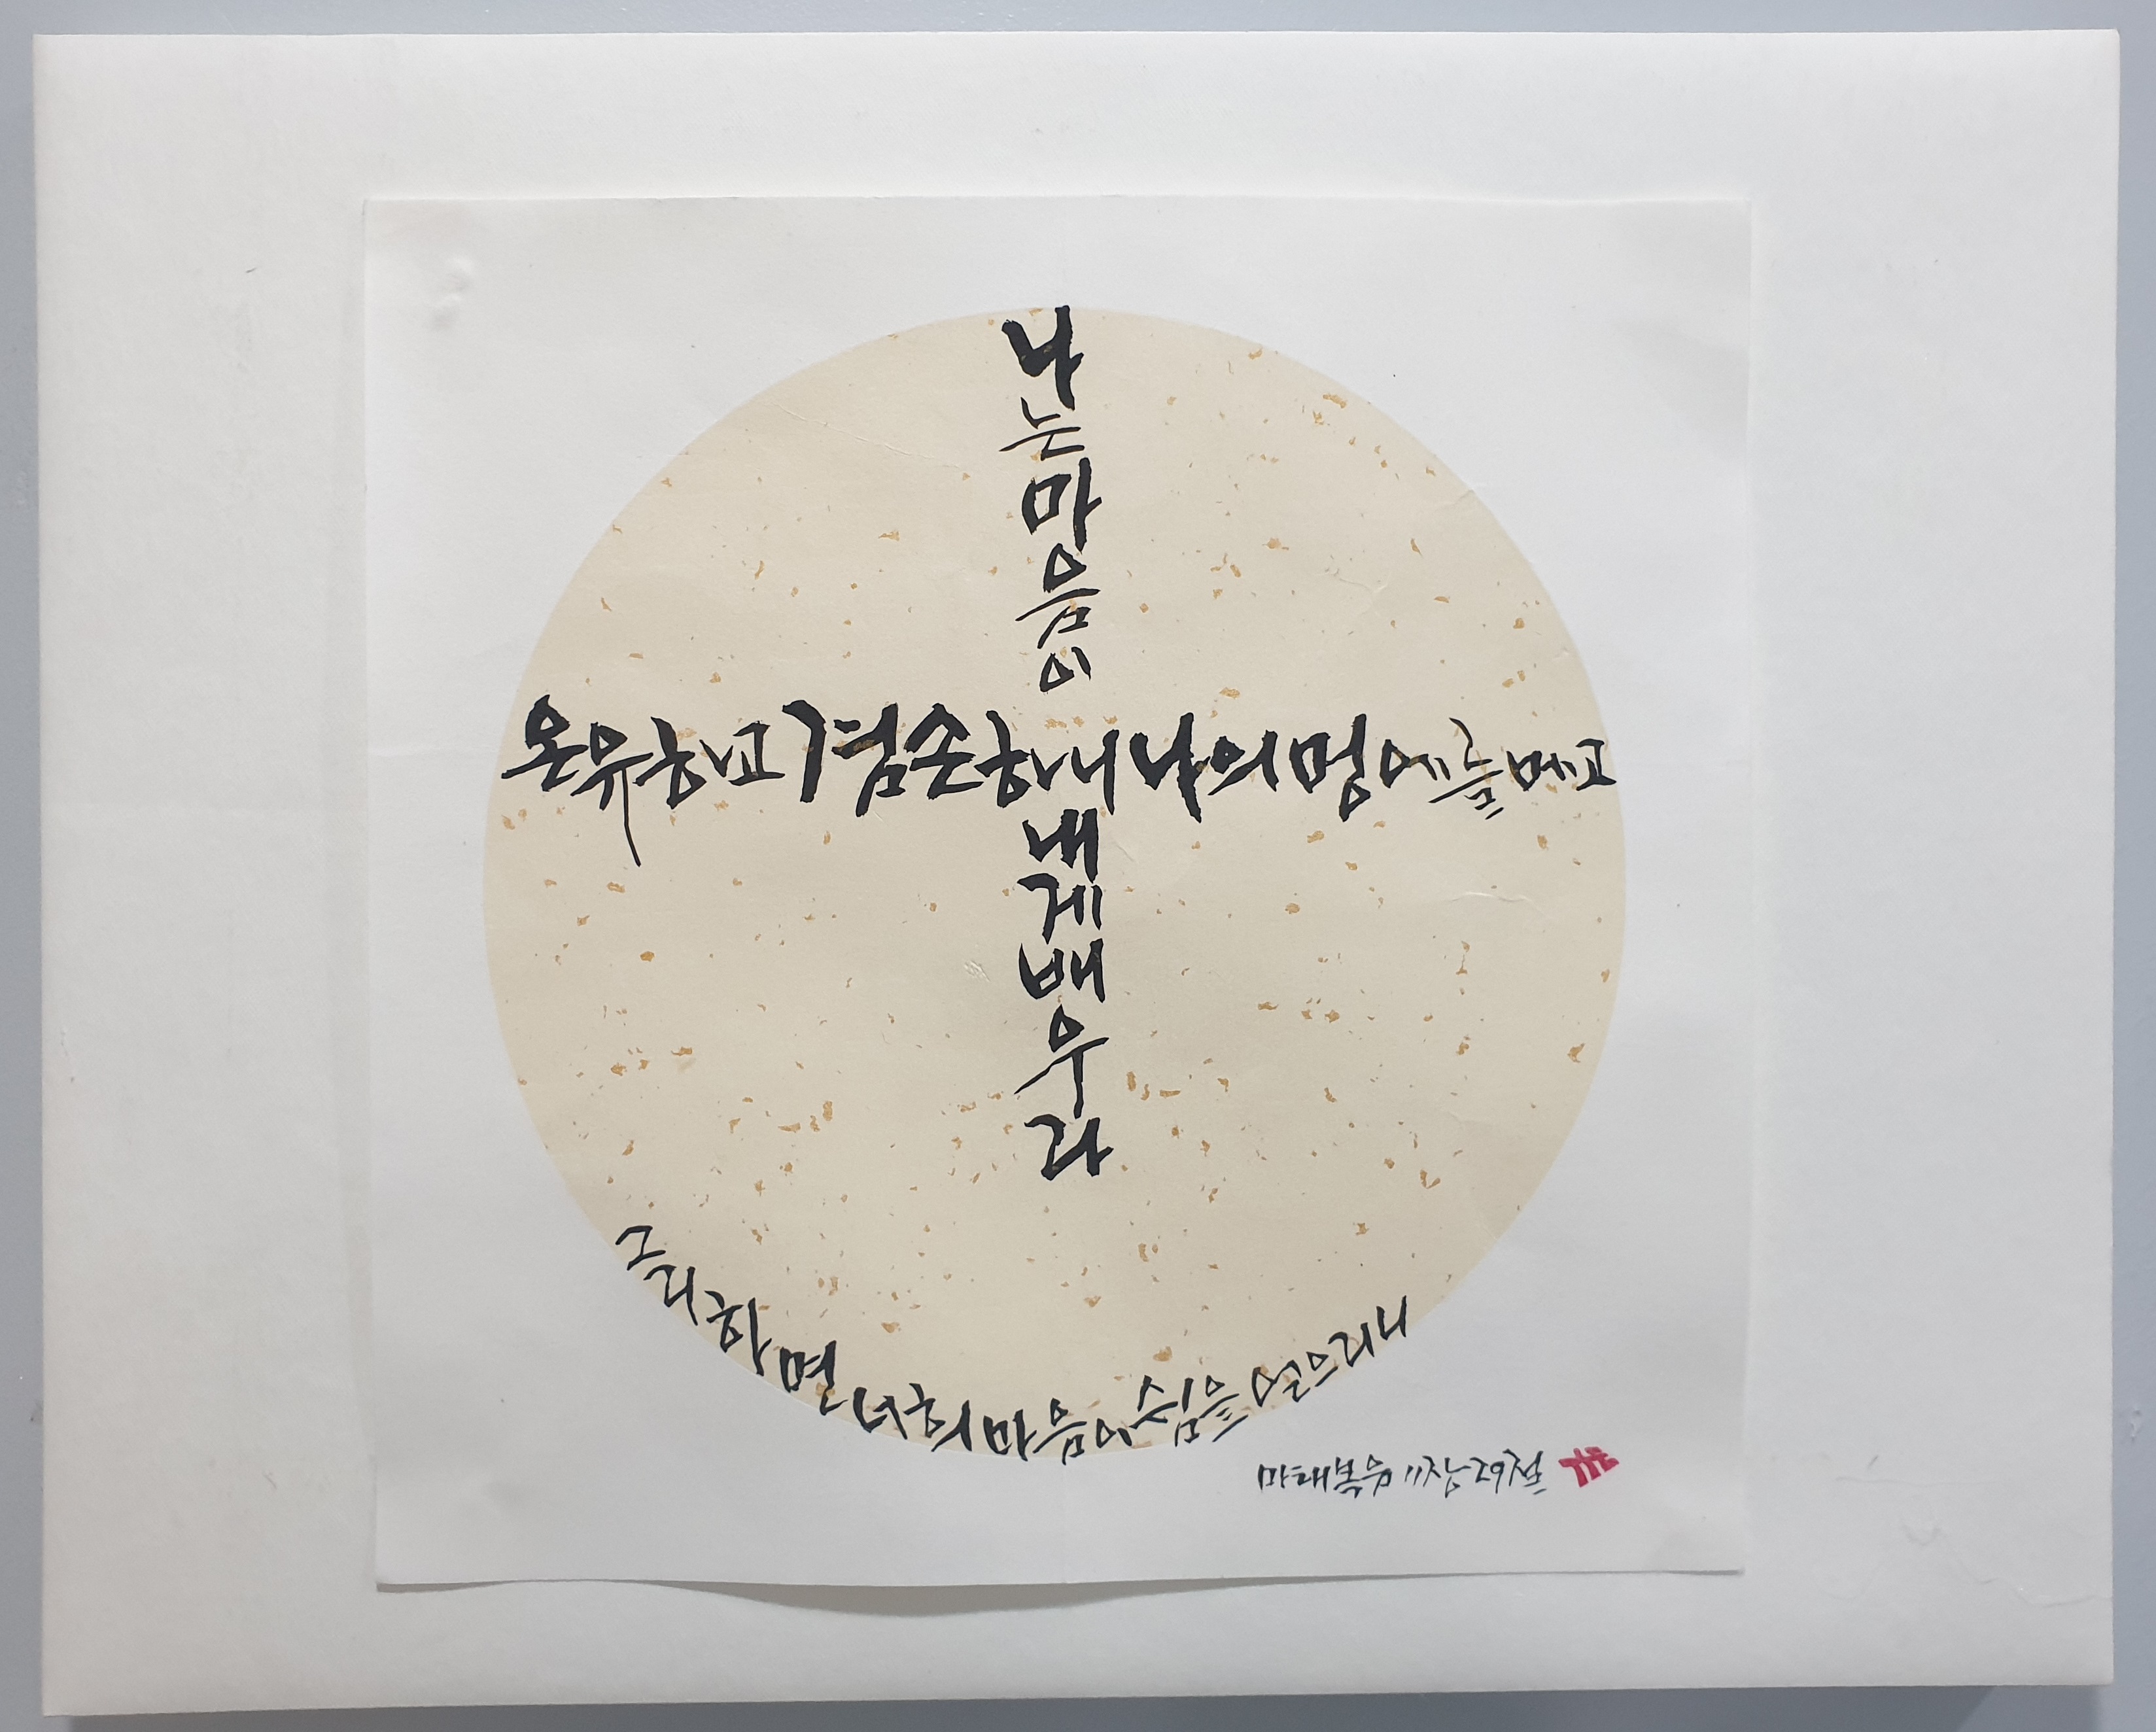 나는마음이
온유하고겸손하니나의멍에를메고
내게배우라
그리하면너희마음이쉼을얻으리니
마태복음11장29절